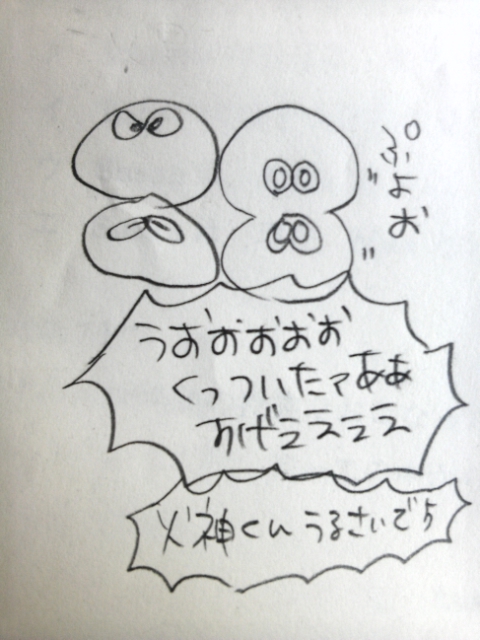 ぷよお
うおおおおお
くっついたァああ
あげえええええ
火神くんうるさいでち